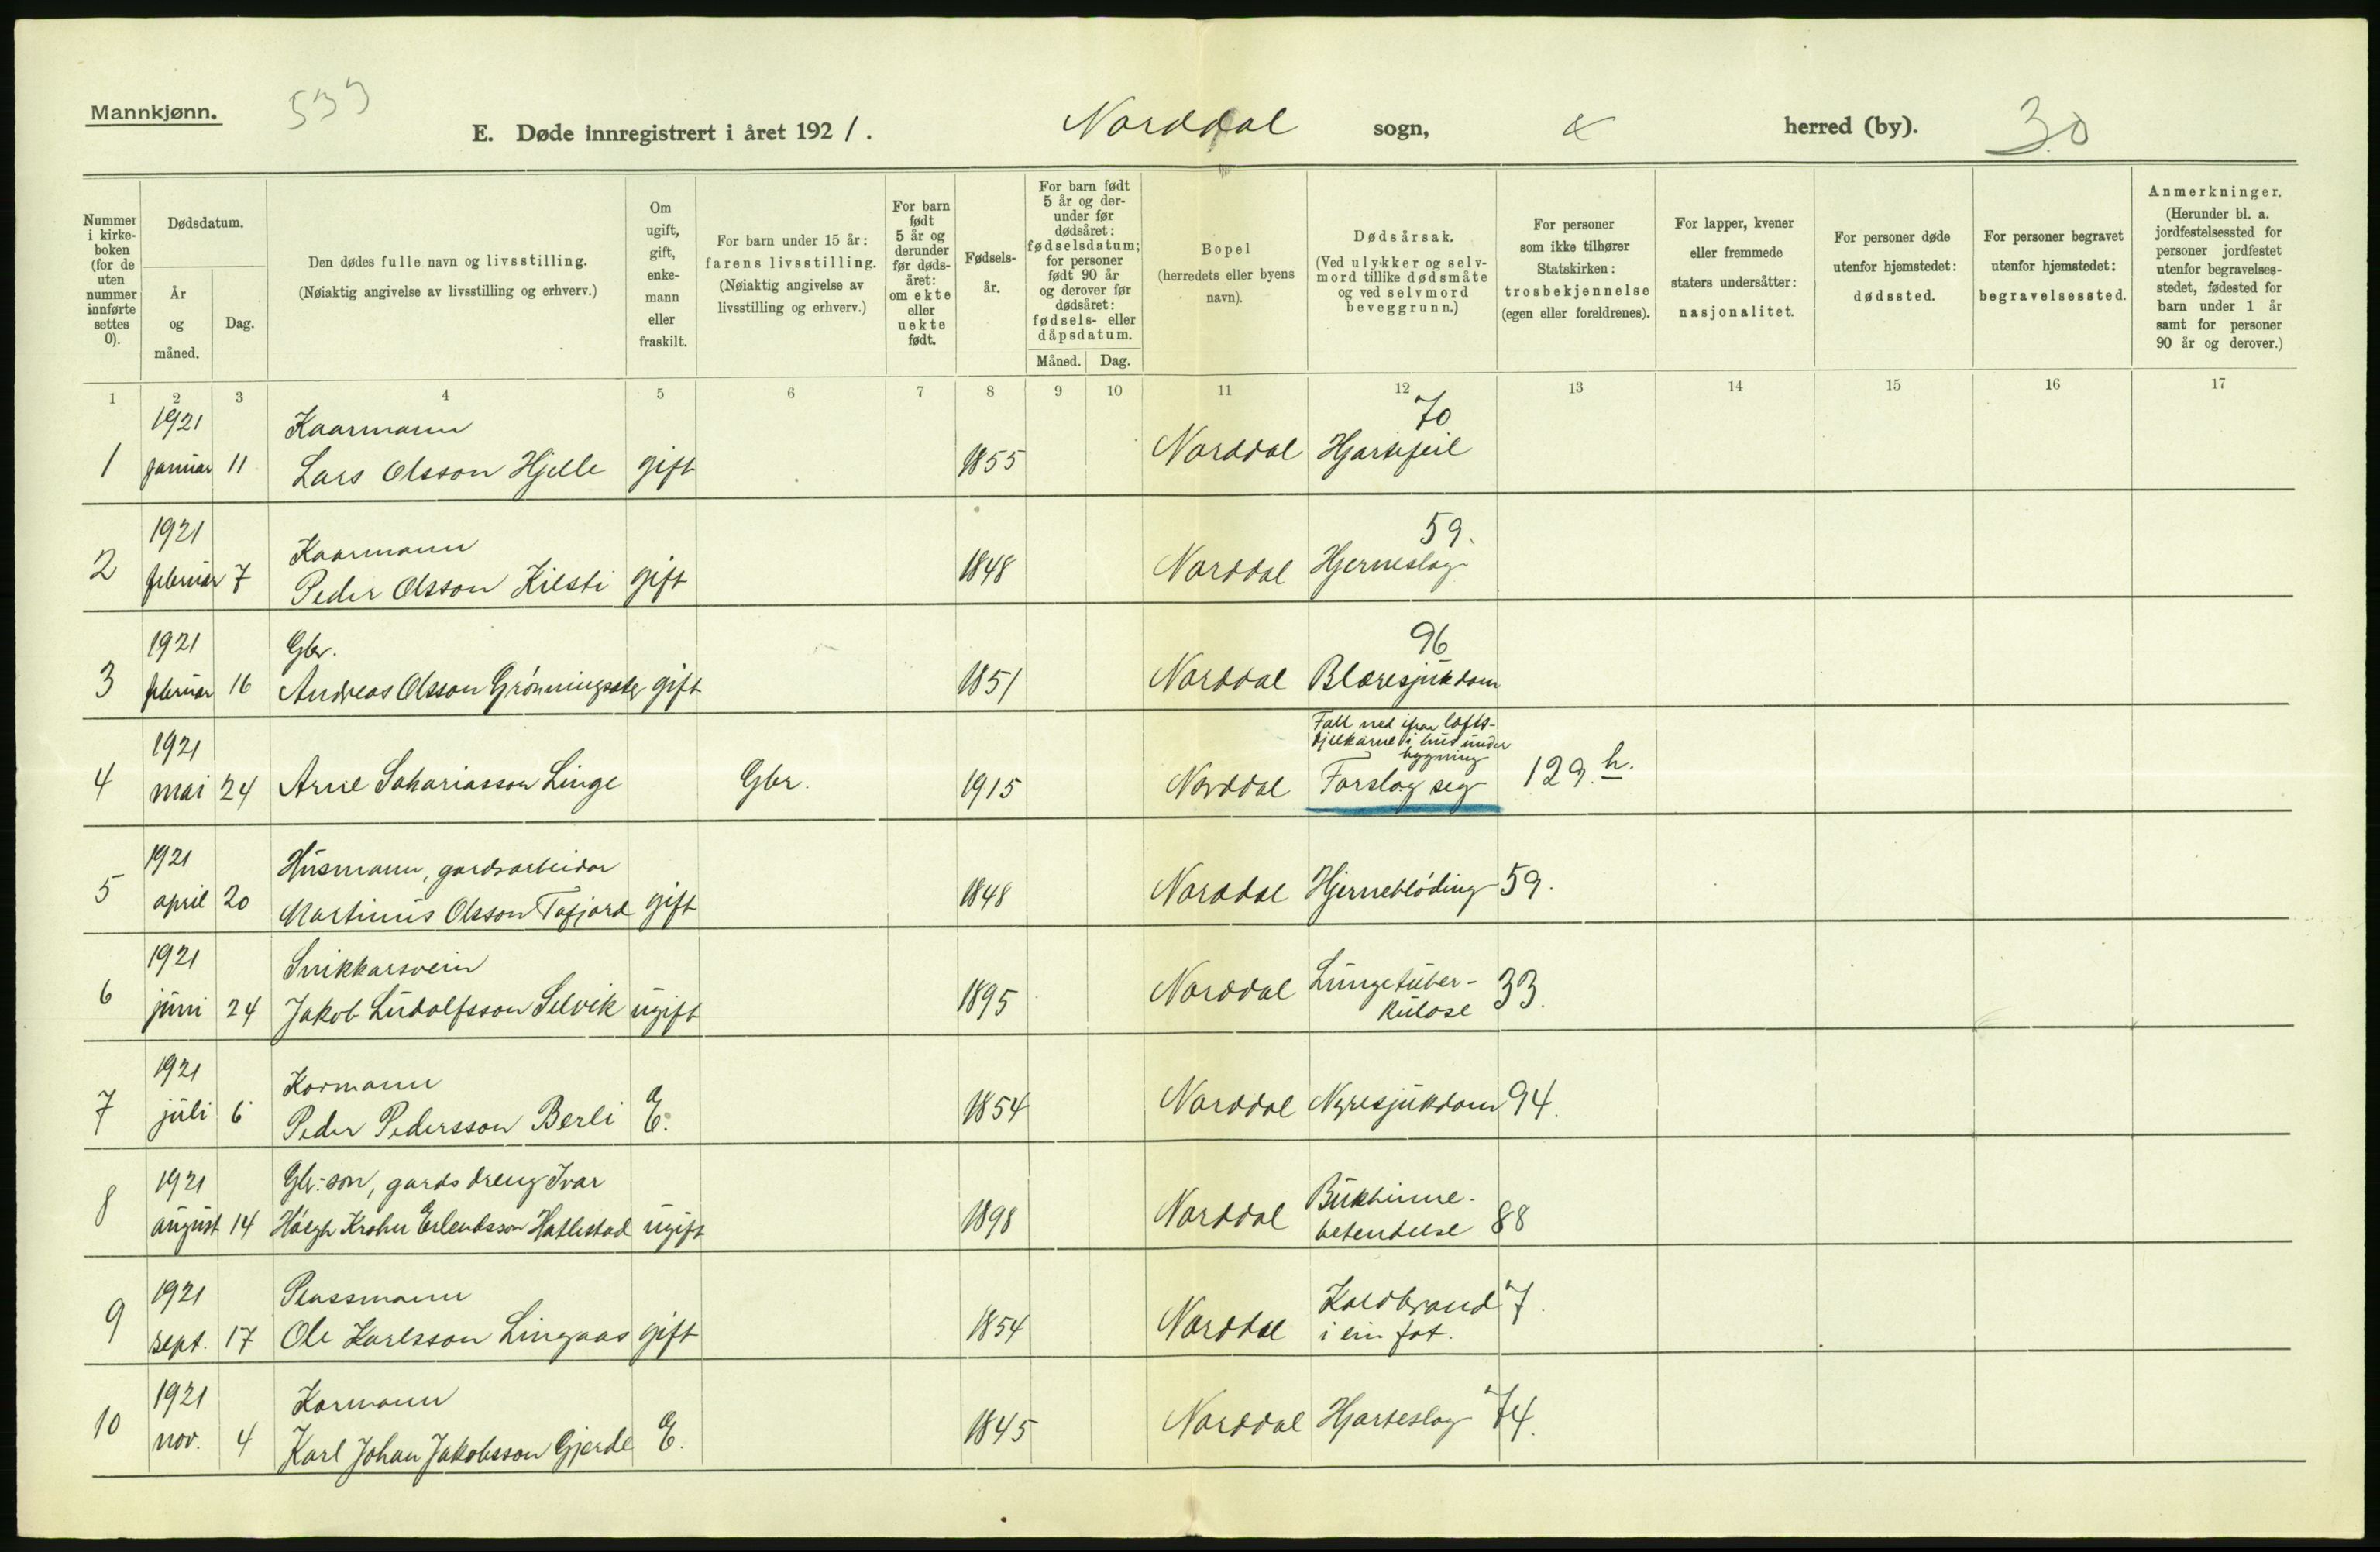 Mannkjønn.
533
E. Døde innregistrert i året 1921.
Norddal sogn,
herred (by).
30
Nummer i kirkeboken (for de uten nummer innførte settes 0).
Dødsdatum.
År og måned.
Dag.
Den dødes fulle navn og livsstilling.
(Nøiaktig angivelse av livsstilling og erhverv.)
Om ugift, gift, enkemann eller fraskilt.
For barn under 15 år: farens livsstilling. (Nøiaktig angivelse av livsstilling og erhverv.)
For barn født 5 år og derunder før dødsåret: om ekte eller uekte født.
Fødselsår.
For barn født 5 år og derunder før dødsåret: fødselsdatum; for personer født 90 år og derover før dødsåret: fødsels- eller dåpsdatum.
Måned. Dag.
Bopel (herredets eller byens navn).
Dødsårsak. (Ved ulykker og selvmord tillike dødsmåte og ved selvmord beveggrunn.)
For personer som ikke tilhører Statskirken: trosbekjennelse (egen eller foreldrenes).
For lapper, kvener eller fremmede staters undersåtter: nasjonalitet.
For personer døde utenfor hjemstedet: dødssted.
For personer begravet utenfor hjemstedet: begravelsessted.
Anmerkninger. (Herunder bl. a. jordfestelsessted for personer jordfestet utenfor begravelsesstedet, fødested for barn under 1 år samt for personer 90 år og derover.)
1 2 3 4 5 6 7 8 9 10 11 12 13 14 15 16 17
1921 Kaarmann 70
1 januar 11 Lars Olsson Hjelle gift 1855 Norddal Hjartefeil
1921 Kaarmann 59.
2 februar 7 Peder Olsson Kilsti gift 1848 Norddal Hjerneslag
1921 Gbr. 96
3 februar 16 Andreas Olsson Grønningsæter gift 1851 Norddal Blæresjukdom
1921 Fall ned ifraa lofts-
bjelkarne i hus under
bygning
4 mai 24 Arne Sakariasson Linge Gbr. 1915 Norddal Forslog seg 129.h.
1921 Husmann, gardsarbeidar
5 april 20 Martinus Olsson Tafjord gift 1848 Norddal Hjernebløding 59.
1921 Snikkarsvein
6 juni 24 Jakob Ludolfsson Selvik ugift 1895 Norddal Lungetuber-
kulose 33.
1921 Kormann
7 juli 6 Peder Pedersson Berli E. 1854 Norddal Nyresjukdom 94.
1921 Gbr.-son, gardsdreng Ivar
8 august 14 Høegh Krohn Erlendsson Hatlestad ugift 1898 Norddal Bukhinne-
betendelse 88
1921 Plassmann
9 sept. 17 Ole Karlsson Lingaas gift 1854 Norddal Koldbrand 7.
i ein fot.
1921 Kormann
10 nov. 4 Karl Johan Jakobsson Gjerde E. 1845 Norddal Hjarteslag 74.